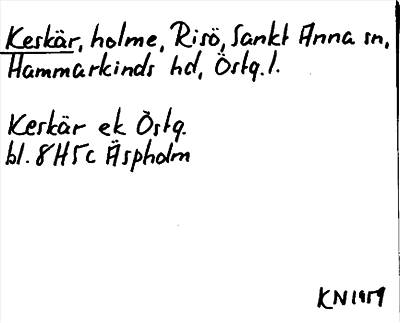 Keskär, holme, Risö, Sankt Anna sn,
Hammarkinds hd, Östg.l.
Keskär ek Östg.
bl. 8H5c Äspholm
KN1959